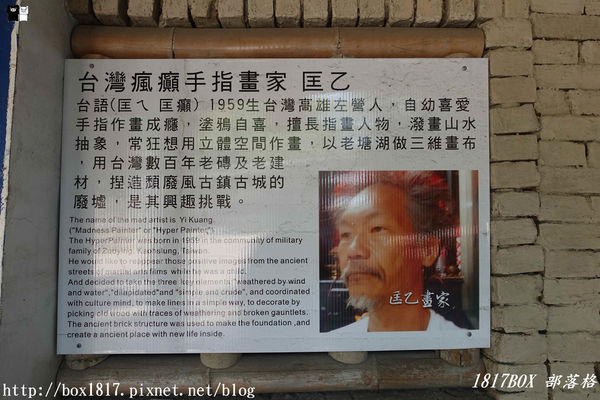 台灣瘋癲手指畫家 匡乙
台語(匡ㄟ 匡癲) 1959生台灣高雄左營人，自幼喜愛
手指作畫成癮，塗鴉自喜，擅長指畫人物，潑畫山水
抽象，常狂想用立體空間作畫，以老塘湖做三維畫布
，用台灣數百年老磚及老建
材，捏造頹廢風古鎮古城的
廢墟，是其興趣挑戰。
The name of the mad artist is Yi Kuang.
("Madness Painter" or "Hyper Painter")
The HyperPainter was born in 1959 in the community of military
family of Zuoying, Kaohsiung, Taiwan.
He would like to reappear those positive images from the ancient
streets of martial arts films while he was a child.
And decided to take the three key elements: "weathered by wind
and water","dilapidated"and "simple and crude", and coordinated
with culture mind, to make lines in a simple way, to decorate by
picking old wood with traces of weathering and broken gauntlets.
The ancient brick structure was used to make the foundation ,and
create a ancient place with new life inside.
匡乙畫家
http://box1817.pixnet.net/blog
1817BOX 部落格